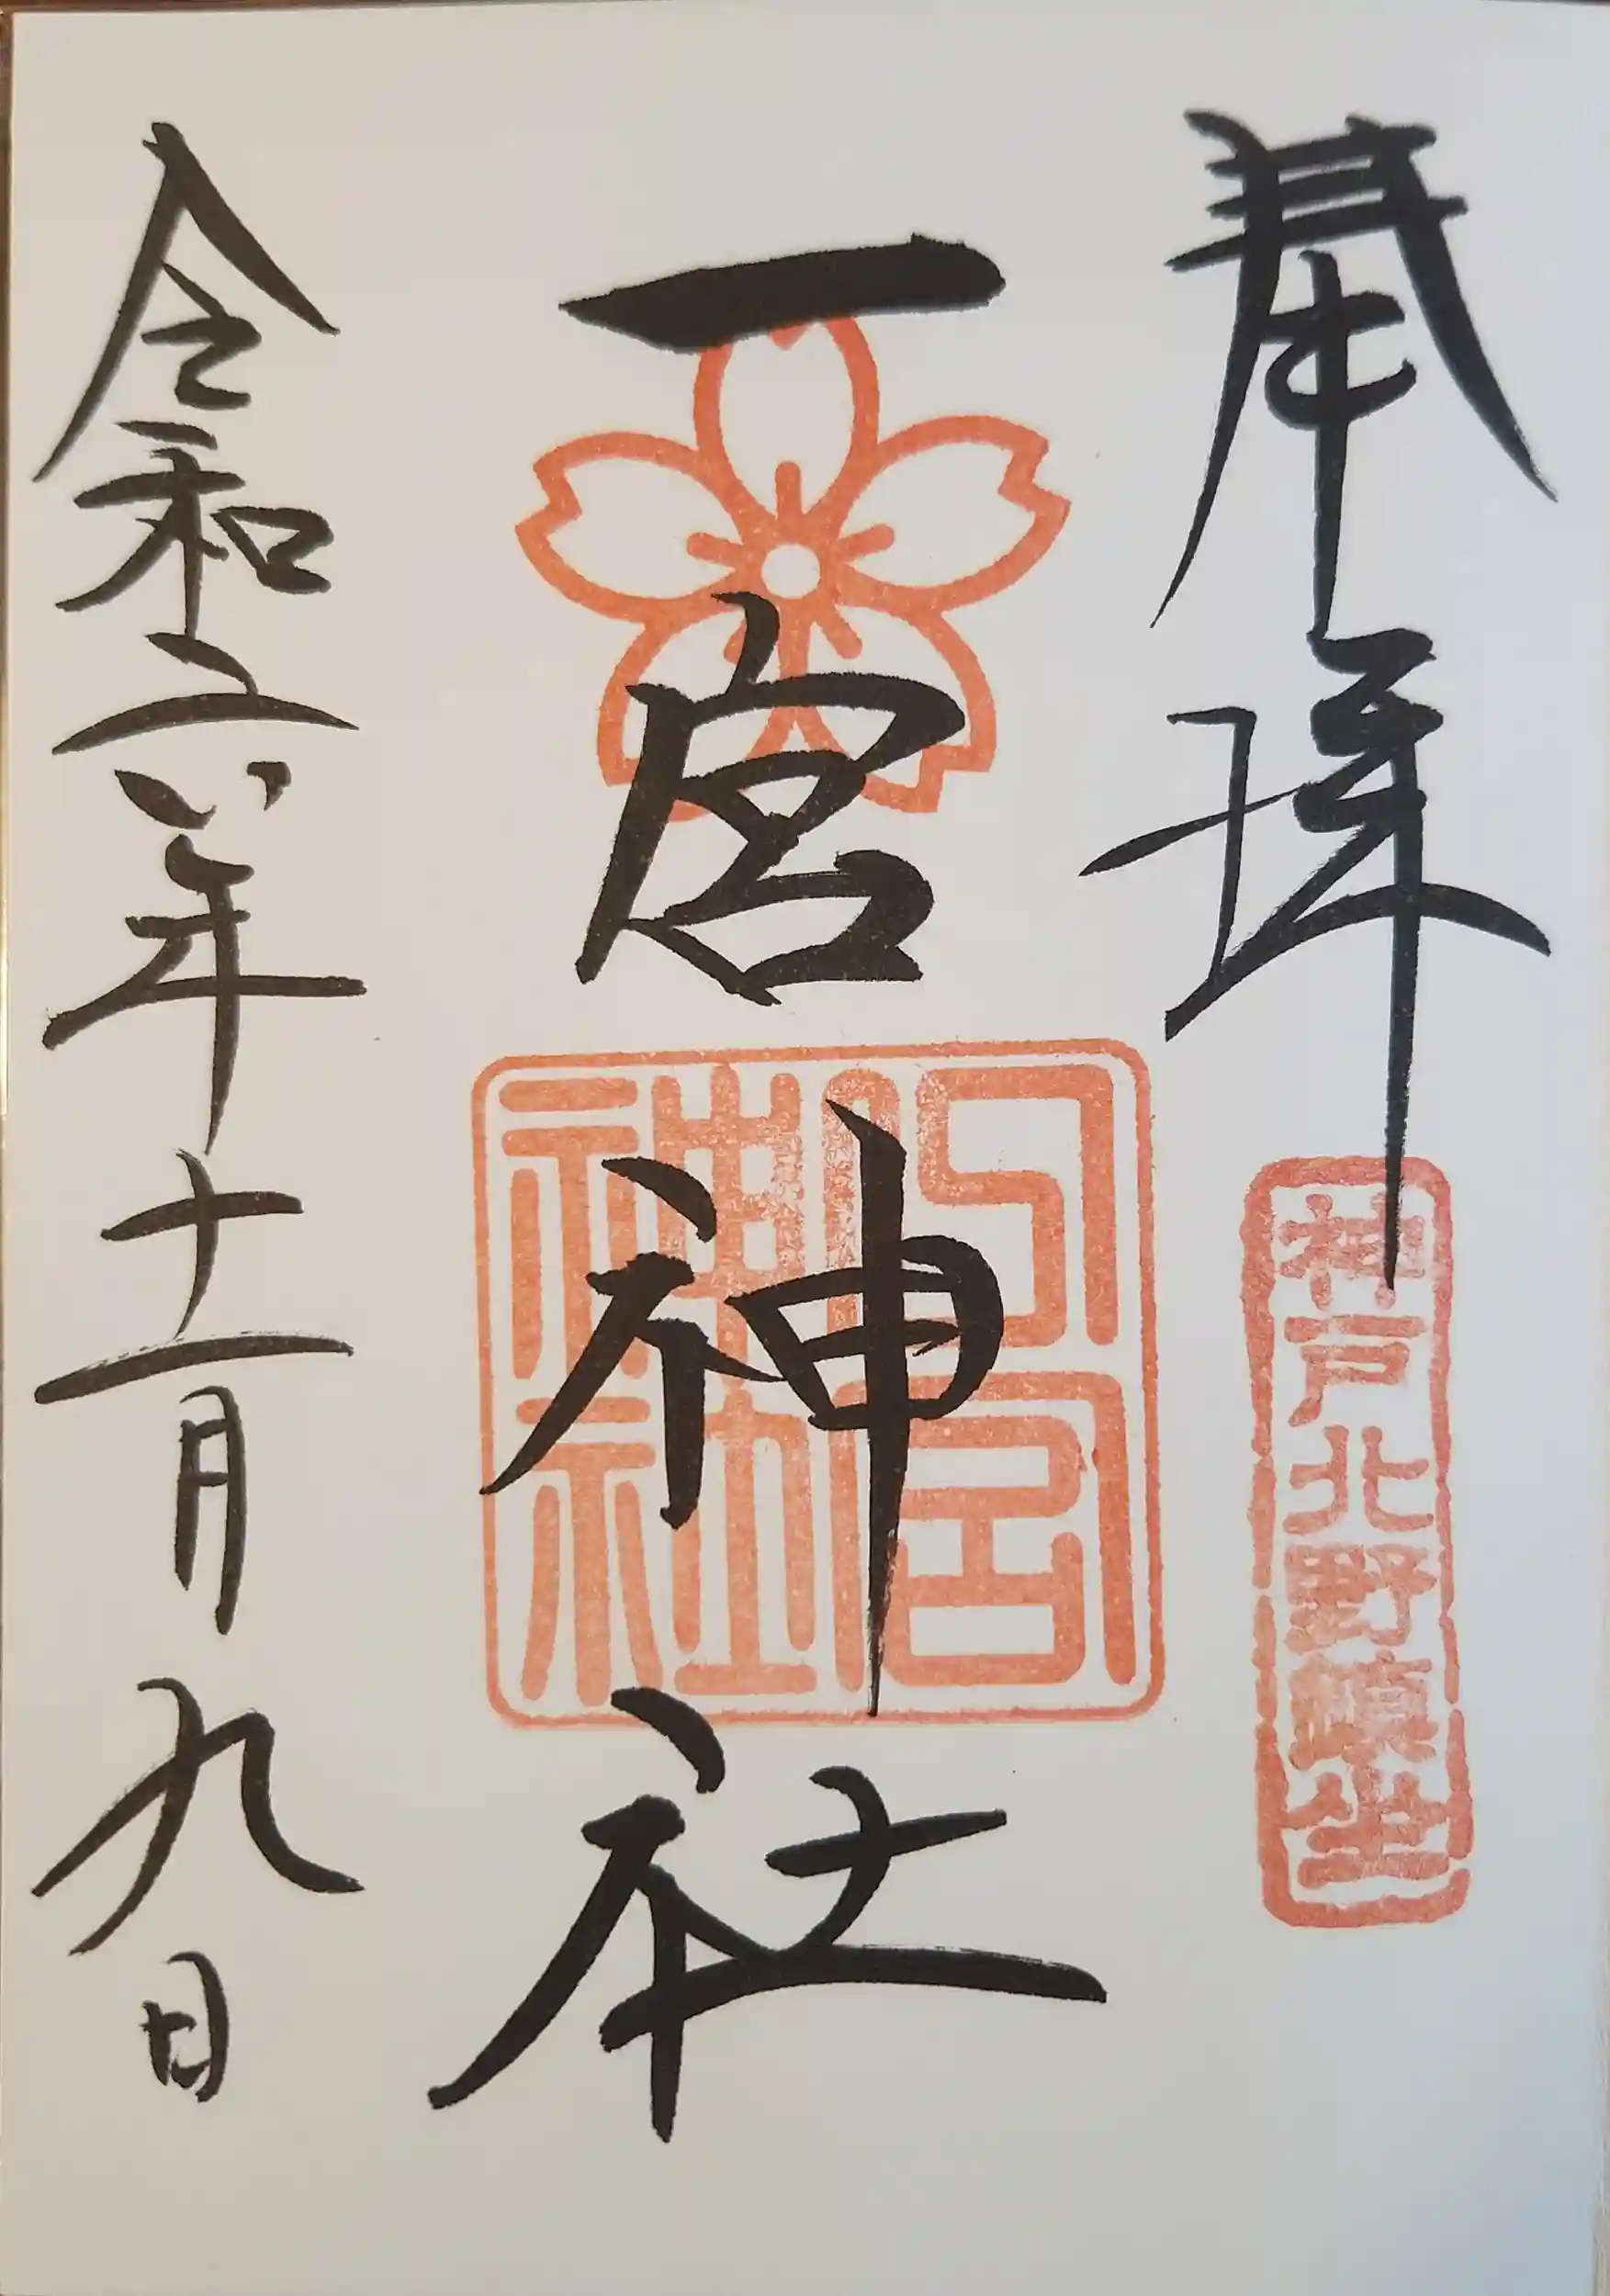 奉拝
神戸北野鎮坐
一宮神社
宮
神社
令和六年十一月九日